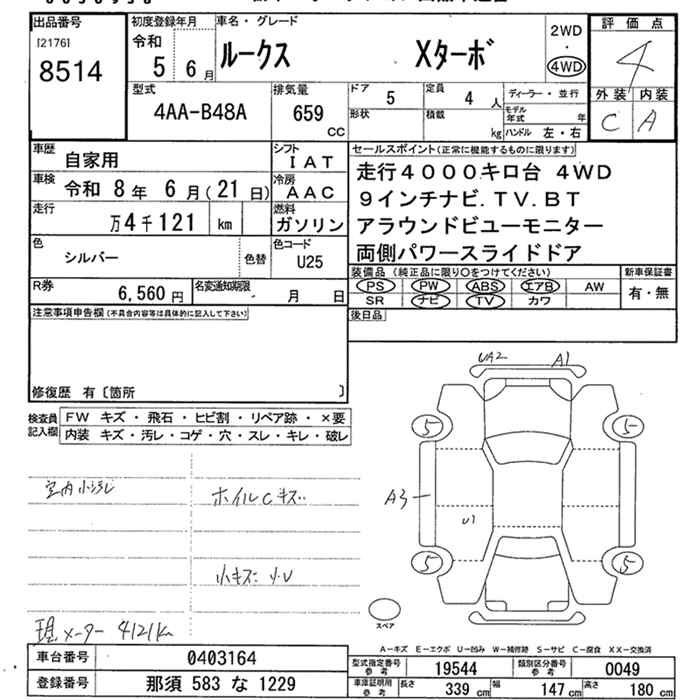 出品番号
[2176]
8514
初度登録年月
令和
5 6月
車名・グレード
ルークス Xターボ
2WD
・
4WD
評価点
4
外装 内装
C A
型式
4AA-B48A
排気量
659
cc
ドア 5
定員 4 人
形状
積載 kg
ディーラー・並行
モデル年式 年
ハンドル 左・右
車歴
自家用
シフト
IAT
車検 令和 8年 6月(21日)
冷房
AAC
走行
万4千121 km
燃料
ガソリン
色
シルバー
色替
色コード
U25
R券
6,560円
名変通知期限
月 日
セールスポイント(正常に機能するものに限ります)
走行4000キロ台 4WD
9インチナビ.TV.BT
アラウンドビューモニター
両側パワースライドドア
装備品(純正品に限り○をつけてください)
PS PW ABS エアB AW
SR ナビ TV カワ
新車保証書
有・無
後日品
注意事項申告欄(不具合内容等は具体的に記入して下さい)
修復歴 有〔箇所 〕
検査員記入欄
FW キズ・飛石・ヒビ割・リペア跡・×要
内装 キズ・汚レ・コゲ・穴・スレ・キレ・破レ
室内小汚レ
ホイルCキズ
小キズ 小U
現メーター 4121km
UA2 A1
5 5
A3
U1
5 5
スペア
A-キズ E-エクボ U-凹み W-補修跡 S-サビ C-腐食 XX-交換済
車台番号 0403164
登録番号 那須 583 な 1229
型式指定番号 参考 19544
類別区分番号 参考 0049
車庫証明用 参考 長さ 339 cm 幅 147 cm 高さ 180 cm